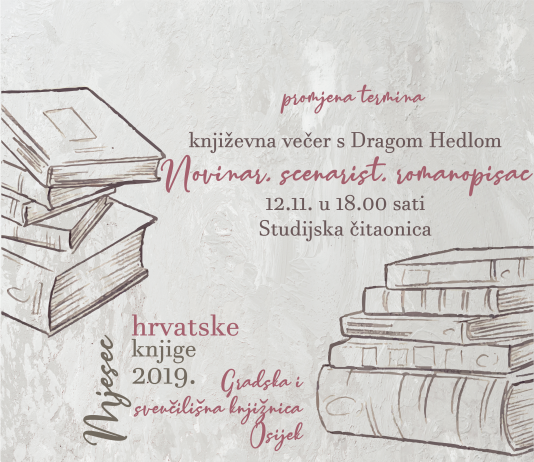 promjena termina
književna večer s Dragom Hedlom
Novinar. scenarist. romanopisac
12.11. u 18.00 sati
Studijska čitaonica
Mjesec
hrvatske
knjige
2019.
Gradska i
sveučilišna knjižnica
Osijek